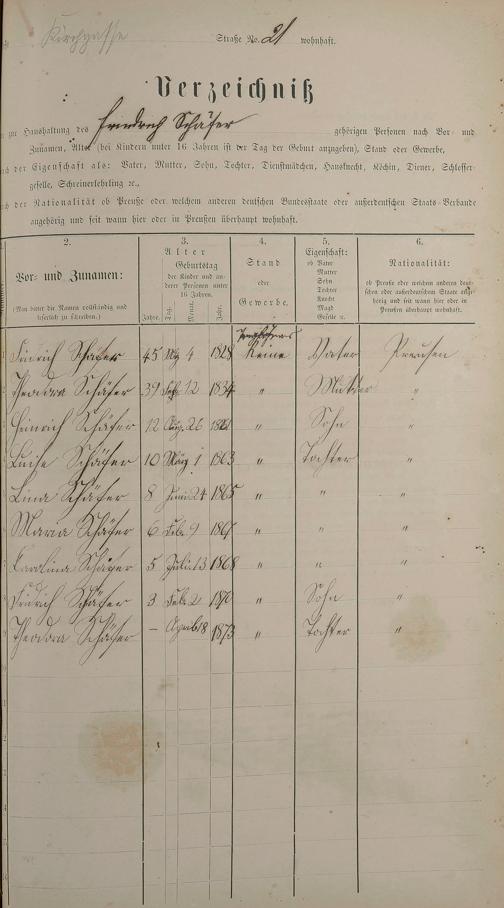 Kirchgasse Straße No. 21 wohnhaft.
Verzeichniß
zur Haushaltung des Friedrich Schäfer gehörigen Personen nach Vor- und
Zunamen, Alter (bei Kindern unter 16 Jahren ist der Tag der Geburt anzugeben), Stand oder Gewerbe,
nach der Eigenschaft als: Vater, Mutter, Sohn, Tochter, Dienstmädchen, Hausknecht, Köchin, Diener, Schlosser-
geselle, Schreinerlehrling ꝛc.,
nach der Nationalität ob Preuße oder welchem anderen deutschen Bundesstaate oder außerdeutschen Staats-Verbande
angehörig und seit wann hier oder in Preußen überhaupt wohnhaft.
2. 3. 4. 5. 6.
Vor- und Zunamen:
(Man bittet die Namen vollständig und
leserlich zu schreiben.)
Alter
Geburtstag
der Kinder und an-
derer Personen unter
16 Jahren.
Jahre. Tag. Monat. Jahr.
Stand
oder
Gewerbe.
Eigenschaft:
ob Vater
Mutter
Sohn
Tochter
Knecht
Magd
Geselle ꝛc.
Nationalität:
ob Preuße oder welchem anderen deut-
schen oder außerdeutschen Staate ange-
hörig und seit wann hier oder in
Preußen überhaupt wohnhaft.
Fridrich Schäfer 45 Mrz 4 1828 Keine Vater Preusen
Theodora Schäfer 39 Feb. 12 1834 " Mutter "
Heinrich Schäfer 12 Aug. 26 1861 " Sohn "
Luise Schäfer 10 März 1 1863 " Tochter "
Lina Schäfer 8 Juni 24 1865 " " "
Maria Schäfer 6 Feb. 9 1867 " " "
Carolina Schäfer 5 Juli 13 1868 " " "
Fridrich Schäfer 3 Feb. 2 1870 " Sohn "
Theodora Schäfer – April 18 1873 " Tochter "